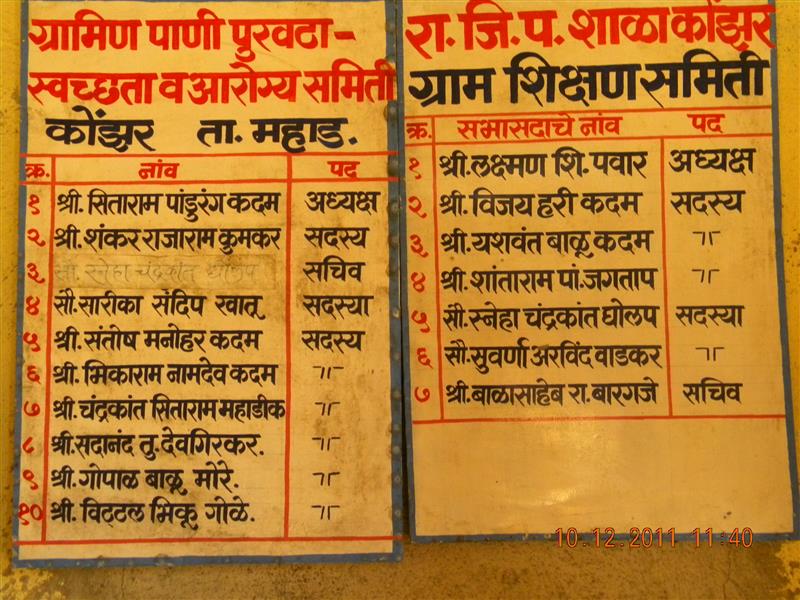 ग्रामिण पाणी पुरवठा-
स्वच्छता व आरोग्य समिती
कोंझर ता. महाड.
क्र. नांव पद
१ श्री. सिताराम पांडुरंग कदम अध्यक्ष
२ श्री. शंकर राजाराम कुमकर सदस्य
३ सौ. स्नेहा चंद्रकांत घोलप सचिव
४ सौ. सारीका संदिप खातू सदस्या
५ श्री. संतोष मनोहर कदम सदस्य
६ श्री. भिकाराम नामदेव कदम -॥-
७ श्री. चंद्रकांत सिताराम महाडीक -॥-
८ श्री. सदानंद तु. देवगिरकर. -॥-
९ श्री. गोपाळ बाळू मोरे. -॥-
१० श्री. विठ्ठल भिकू गोळे. -॥-
रा. जि. प. शाळा कोंझर
ग्राम शिक्षण समिती
क्र. सभासदाचे नांव पद
१ श्री. लक्ष्मण शि. पवार अध्यक्ष
२ श्री. विजय हरी कदम सदस्य
३ श्री. यशवंत बाळू कदम -॥-
४ श्री. शांताराम पां. जगताप -॥-
५ सौ. स्नेहा चंद्रकांत घोलप सदस्या
६ सौ. सुवर्णा अरविंद वाडकर -॥-
७ श्री. बाळासाहेब रा. बारगजे सचिव
10.12.2011 11:40